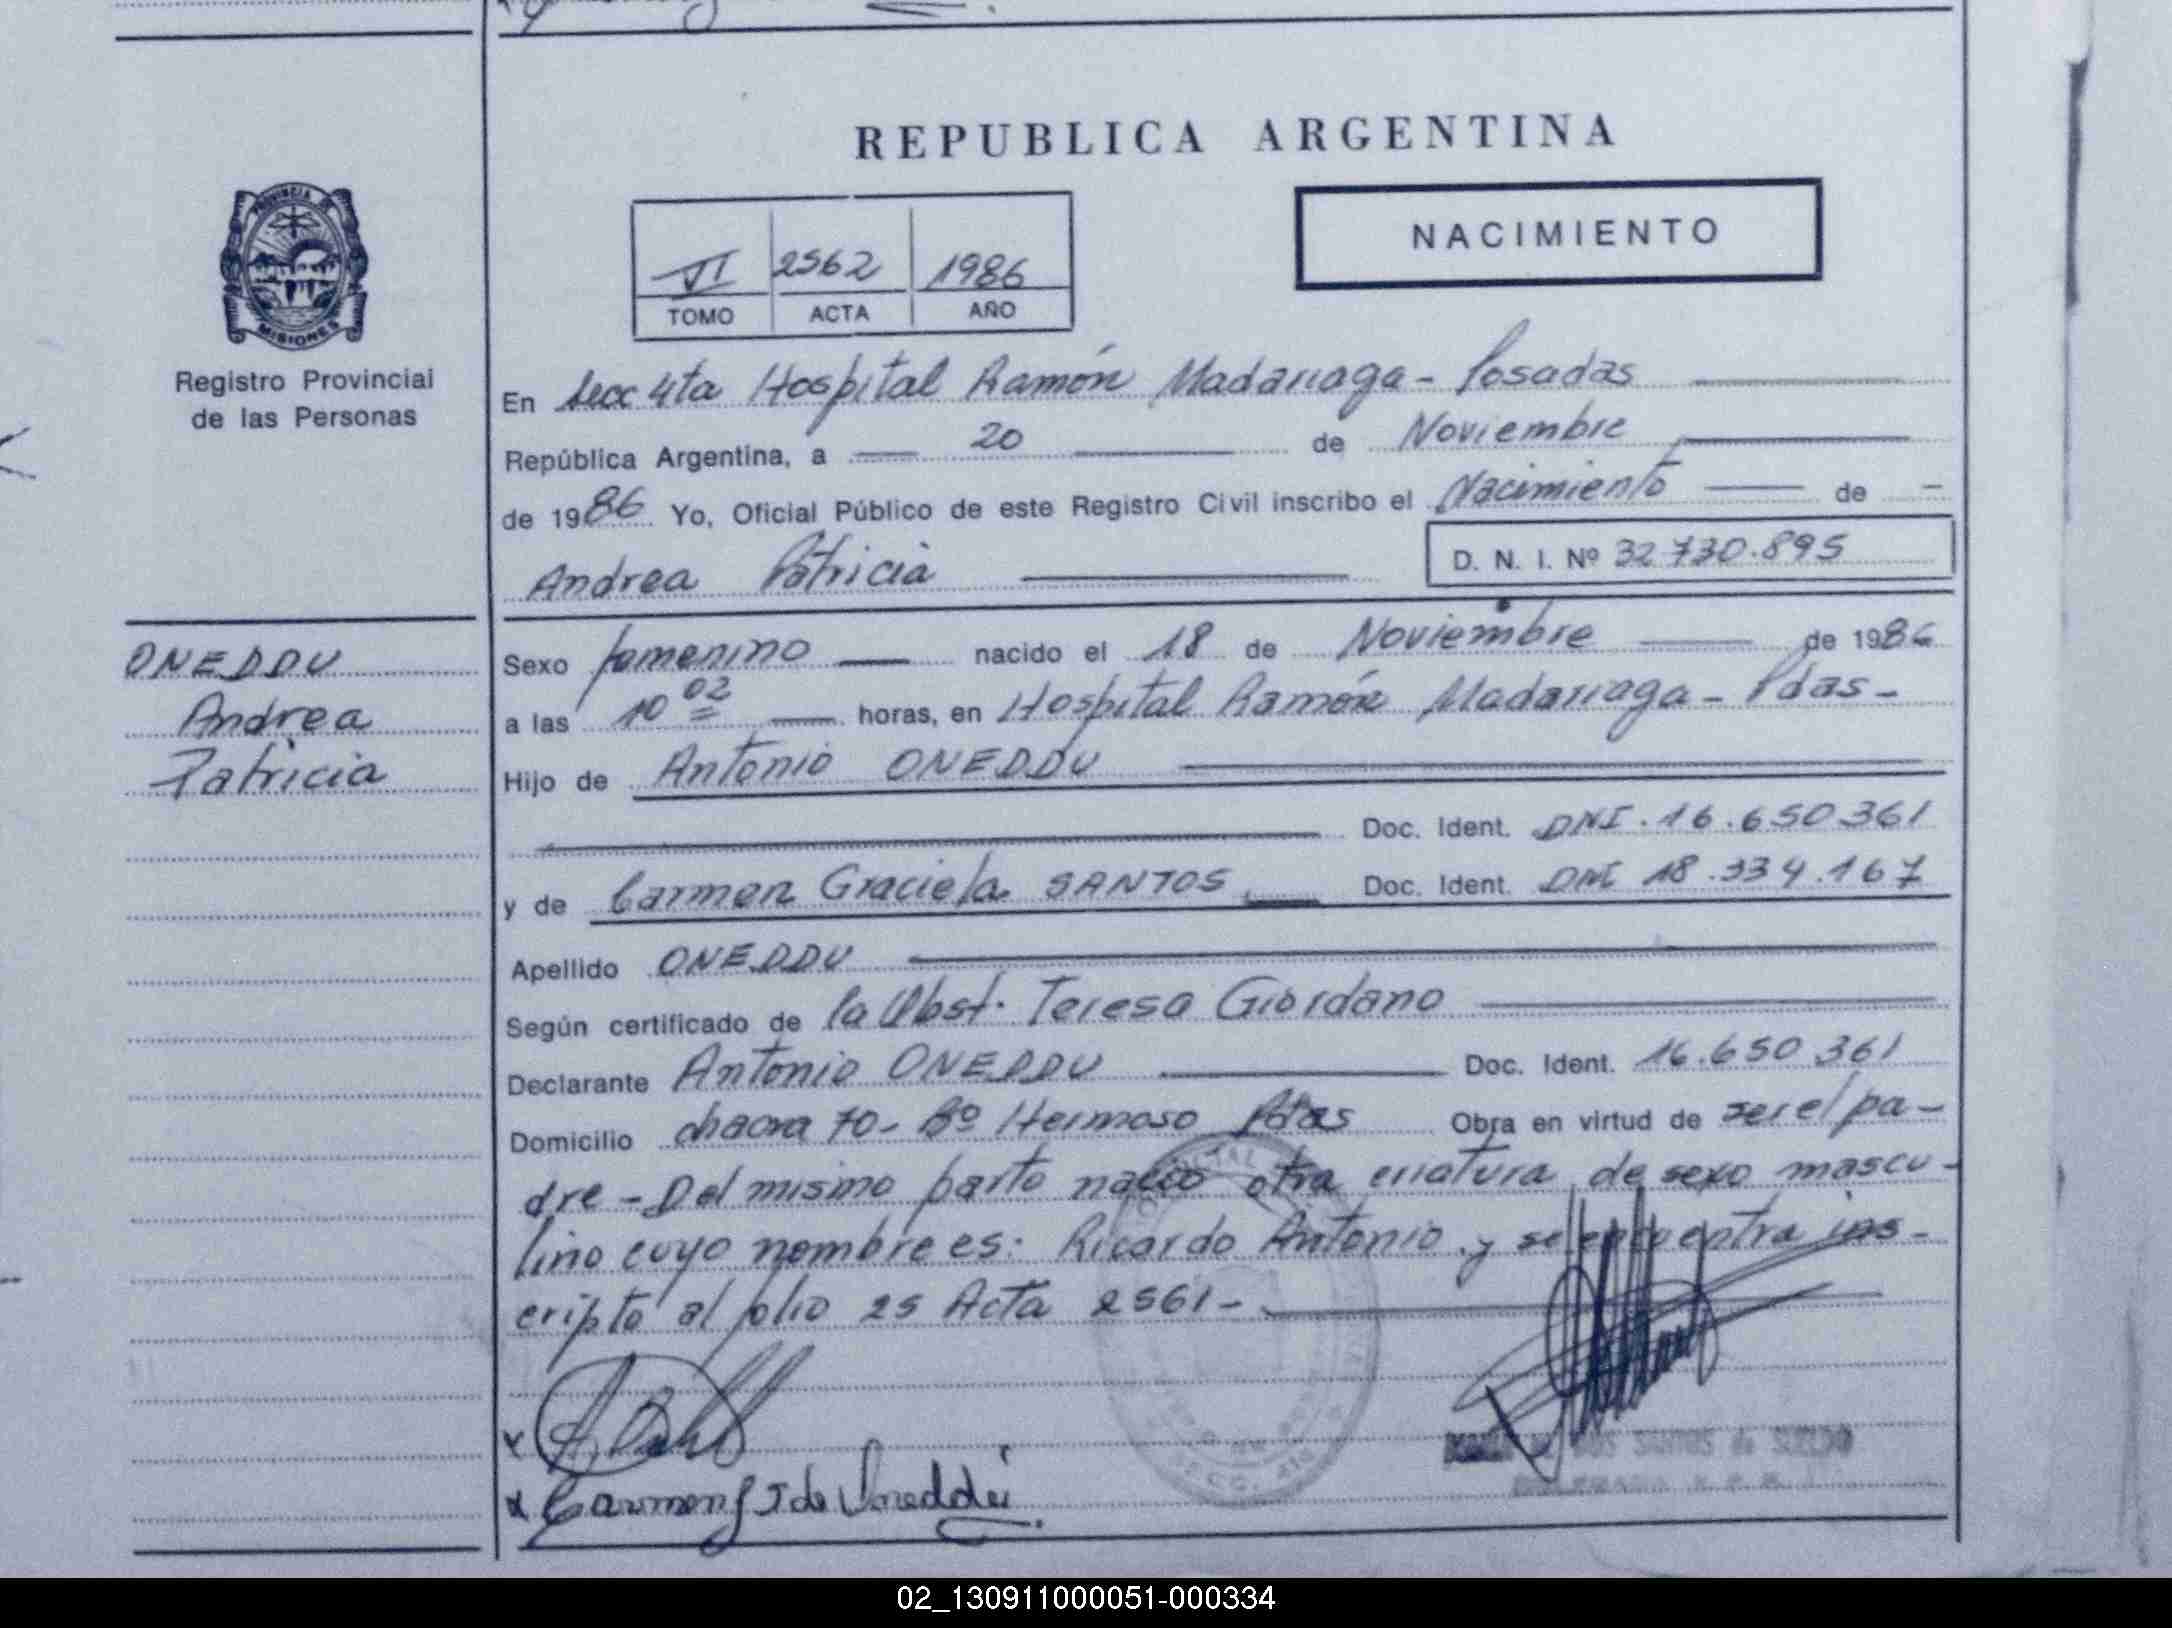 REPUBLICA ARGENTINA
PROVINCIA DE
MISIONES
Registro Provincial
de las Personas
VI 2562 1986
TOMO ACTA AÑO
NACIMIENTO
En Secc 4ta Hospital Ramón Madariaga - Posadas
República Argentina, a 20 de Noviembre
de 1986 Yo, Oficial Público de este Registro Civil inscribo el Nacimiento de -
Andrea Patricia D. N. I. Nº 32 730.895
ONEDDU
Andrea
Patricia
Sexo femenino nacido el 18 de Noviembre de 1986
a las 10 02 horas, en Hospital Ramón Madariaga - Pdas -
Hijo de Antonio ONEDDU
Doc. Ident. DNI. 16.650 361
y de Carmen Graciela SANTOS Doc. Ident. DNI 18.334.167
Apellido ONEDDU
Según certificado de la Obst. Teresa Giordano
Declarante Antonio ONEDDU Doc. Ident. 16.650 361
Domicilio chacra 70 - Bº Hermoso Pdas Obra en virtud de ser el pa-
dre - Del mismo parto nació otra criatura de sexo mascu-
lino cuyo nombre es: Ricardo Antonio y se encuentra ins-
cripto al folio 25 Acta 2561 -
x
x Carmen de Oneddu
DOS SANTOS de
02_130911000051-000334